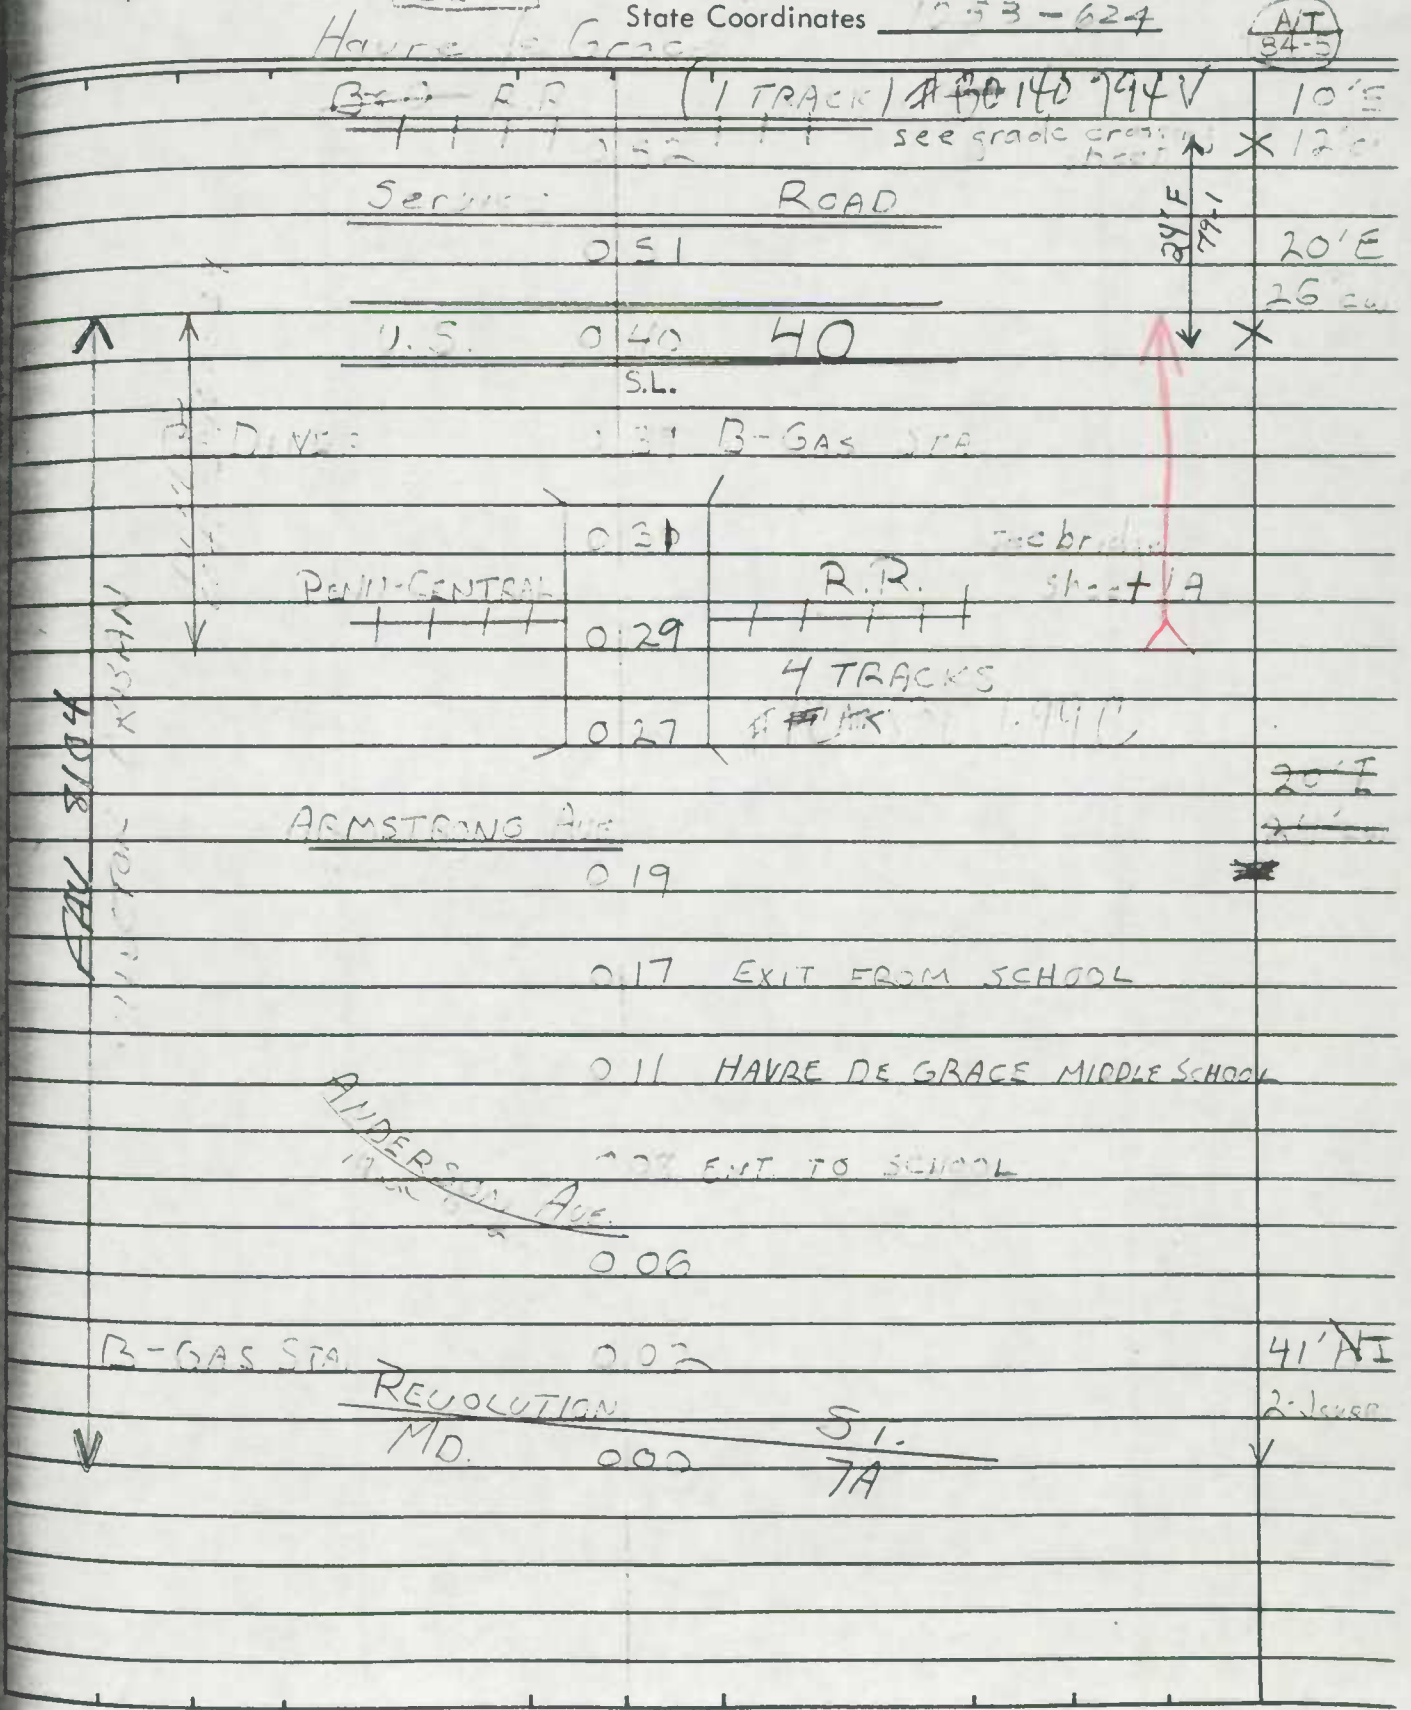 State Coordinates - 624
A/T
84-5
Havre de Grace
R.R. (1 TRACK) # 140 794V 10'E
see grade crossing 12'
Service ROAD
24'F
79-1
0 51 20'E
26
U.S. 0 40 40
S.L.
B-DINER 0 37 B-GAS STA
0 31 see bridge
PENN-CENTRAL R.R. sheet 1A
0 29
4 TRACKS
0 27
20'I
URBAN
FAU 8104
ARMSTRONG AVE
0 19
0 17 EXIT FROM SCHOOL
0 11 HAVRE DE GRACE MIDDLE SCHOOL
ANDERSON AVE.
0 08 ENT. TO SCHOOL
0 06
B-GAS STA. 0 02 41' I
REVOLUTION ST.
MD. 0 00 7A